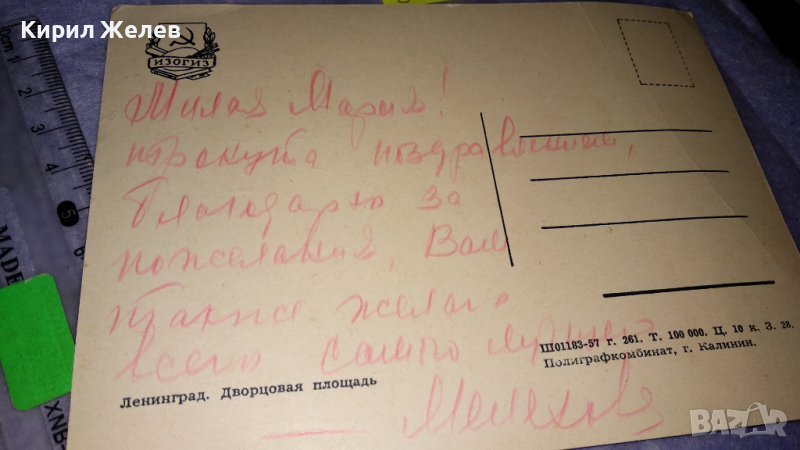 Кирил Желев
ИЗОГИЗ
Милая Мария!
поздравление,
благодарю за
пожелания, Вам
также желаю
всего самого лучшего
Ш01183-57 г. 261. Т. 100 000. Ц. 10 к. З. 28.
Полиграфкомбинат, г. Калинин.
Ленинград. Дворцовая площадь
0cm 1
2
3
4
5
6
MADE
XNB
BAZAR
bg